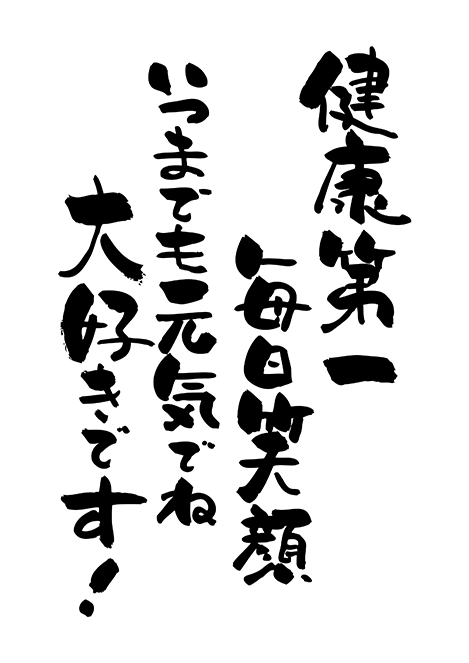 健康第一
毎日笑顔
いつまでも元気でね
大好きです！